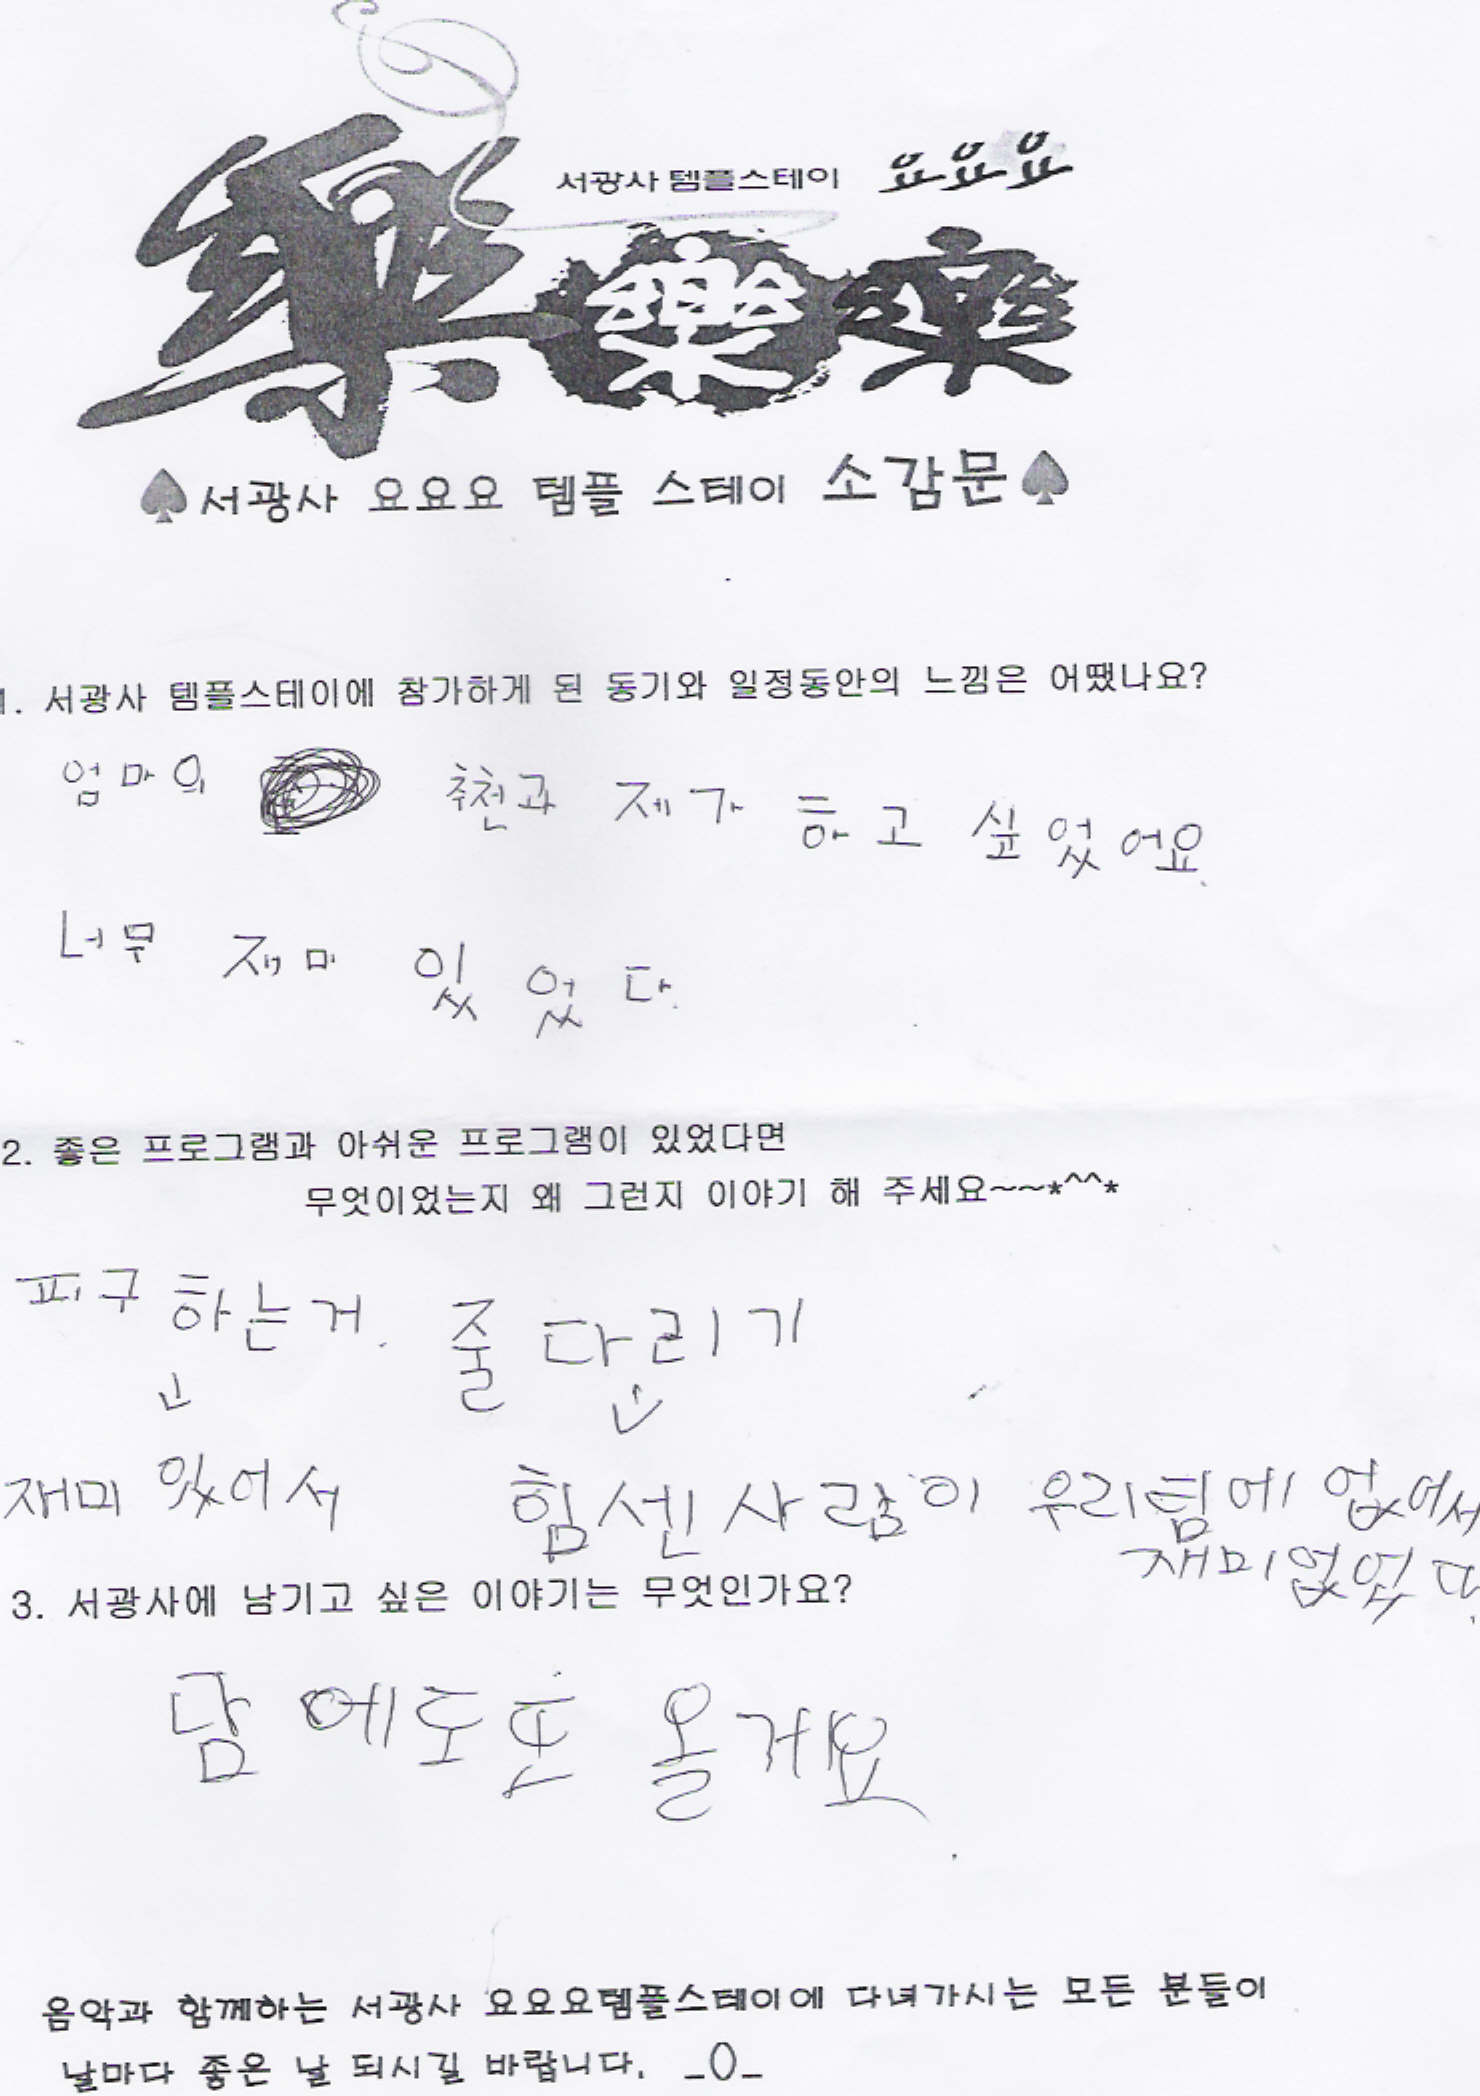 서광사 템플스테이 요요요
樂 樂 樂
♠서광사 요요요 템플 스테이 소감문♠
1. 서광사 템플스테이에 참가하게 된 동기와 일정동안의 느낌은 어땠나요?
엄마의 추천과 제가 하고 싶었어요.
너무 재미 있었다.
2. 좋은 프로그램과 아쉬운 프로그램이 있었다면
무엇이었는지 왜 그런지 이야기 해 주세요~~*^^*
피구 하는거. 줄다리기
재미 있어서 힘센사람이 우리팀에 없어서
재미없었다.
3. 서광사에 남기고 싶은 이야기는 무엇인가요?
담에도또 올게요
음악과 함께하는 서광사 요요요템플스테이에 다녀가시는 모든 분들이
날마다 좋은 날 되시길 바랍니다. _0_